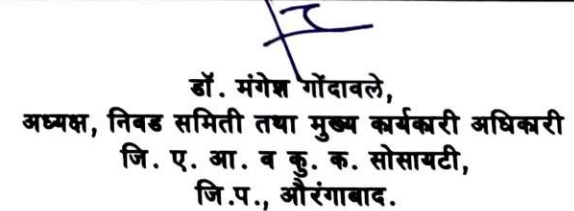 डॉ. मंगेश गोंदावले,
अध्यक्ष, निवड समिती तथा मुख्य कार्यकारी अधिकारी
जि. ए. आ. व कु. क. सोसायटी,
जि.प., औरंगाबाद.